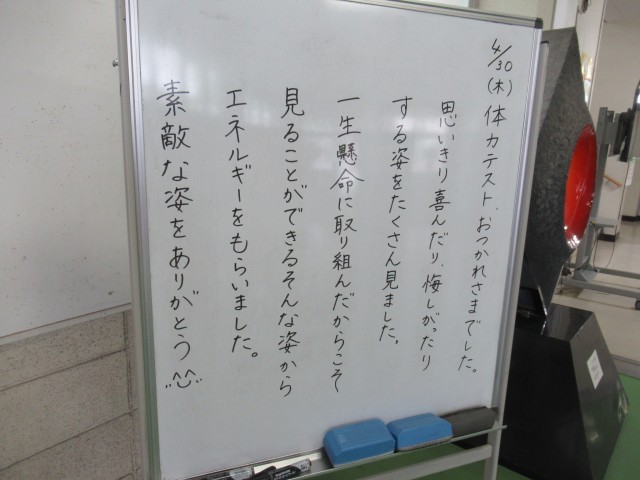 4/30(木)体力テスト、おつかれさまでした。
思いきり喜んだり、悔しがったり
する姿をたくさん見ました。
一生懸命に取り組んだからこそ
見ることができるそんな姿から
エネルギーをもらいました。
素敵な姿をありがとう^^